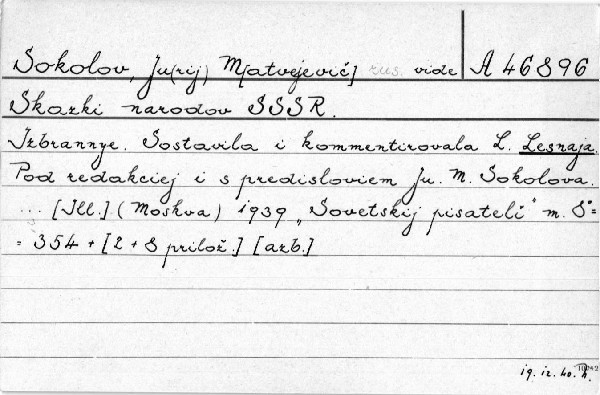 Sokolov, Ju(rij) M[atvejevič] rus. vide A 46896
Skazki narodov SSSR.
Izbrannye. Sostavila i kommentirovala L. Lesnaja.
Pod redakciej i s predisloviem Ju. M. Sokolova.
... [Ill.] (Moskva) 1939 „Sovetskij pisatelí" m. 8°
= 354 + [2 + 8 prilož.] [azb.]
19. IX. 40. R.